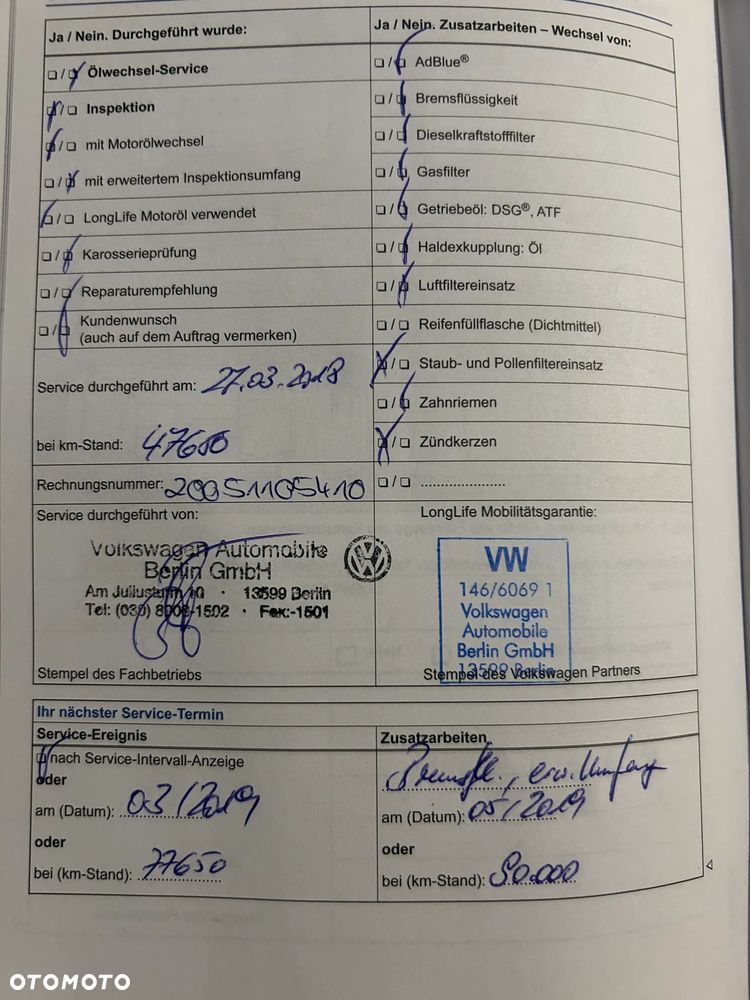 Ja / Nein. Durchgeführt wurde:
❏ / ❏ Ölwechsel-Service
❏ / ❏ Inspektion
❏ / ❏ mit Motorölwechsel
❏ / ❏ mit erweitertem Inspektionsumfang
❏ / ❏ LongLife Motoröl verwendet
❏ / ❏ Karosserieprüfung
❏ / ❏ Reparaturempfehlung
❏ / ❏ Kundenwunsch
(auch auf dem Auftrag vermerken)
Service durchgeführt am: 27.03.2018
bei km-Stand: 47650
Rechnungsnummer: 20051105410
Service durchgeführt von:
Volkswagen Automobile
Berlin GmbH
Am Juliusturm 10 · 13599 Berlin
Tel: (030) 8908-1502 · Fax:-1501
Stempel des Fachbetriebs
Ja / Nein. Zusatzarbeiten – Wechsel von:
❏ / ❏ AdBlue®
❏ / ❏ Bremsflüssigkeit
❏ / ❏ Dieselkraftstofffilter
❏ / ❏ Gasfilter
❏ / ❏ Getriebeöl: DSG®, ATF
❏ / ❏ Haldexkupplung: Öl
❏ / ❏ Luftfiltereinsatz
❏ / ❏ Reifenfüllflasche (Dichtmittel)
❏ / ❏ Staub- und Pollenfiltereinsatz
❏ / ❏ Zahnriemen
❏ / ❏ Zündkerzen
❏ / ❏ .....................
LongLife Mobilitätsgarantie:
VW
146/6069 1
Volkswagen
Automobile
Berlin GmbH
13599 Berlin
Stempel des Volkswagen Partners
Ihr nächster Service-Termin
Service-Ereignis
❏ nach Service-Intervall-Anzeige
oder
am (Datum): 03/2019
oder
bei (km-Stand): 77650
Zusatzarbeiten
Bremsfl., erw. Umfang
am (Datum): 05/2019
oder
bei (km-Stand): 90.000
OTOMOTO